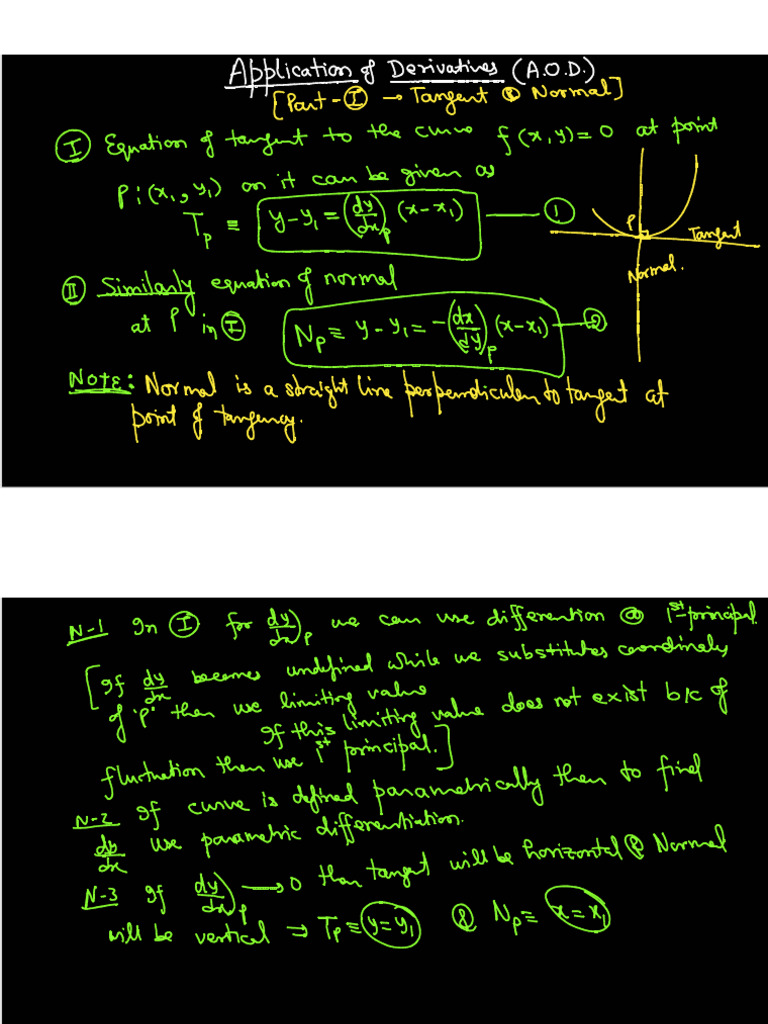 Application of Derivatives (A.O.D.)
[Part-Ⓘ → Tangent & Normal]
Ⓘ Equation of tangent to the curve f(x,y)=0 at point
P:(x₁,y₁) on it can be given as
T_P ≡ y-y₁=(dy/dx)_P (x-x₁) — ①
P
Tangent
Normal.
Ⓘⓘ Similarly equation of normal
at P in Ⓘ N_P ≡ y-y₁=-(dx/dy)_P (x-x₁) — ②
NOTE: Normal is a straight line perpendicular to tangent at
point of tangency.
N-1 In Ⓘ for dy/dx)_P we can use differention @ 1st principal.
[If dy/dx becomes undefined while we substitutes coordinates
of 'P' then use limiting value
If this limiting value does not exist b/c of
fluctuation then use 1st principal.]
N-2 If curve is defined parametrically then to find
dy/dx use parametric differentiation.
N-3 If dy/dx)_P → 0 then tangent will be horizontal & Normal
will be vertical → T_P ≡ y=y₁ & N_P ≡ x=x₁